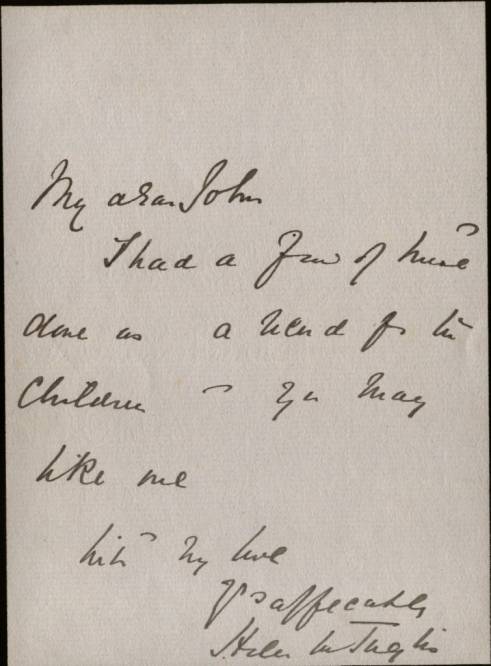 My dear John
I had a few of these
done as a for the
Children & you may
like one
With my love
Yrs affecately
Helen